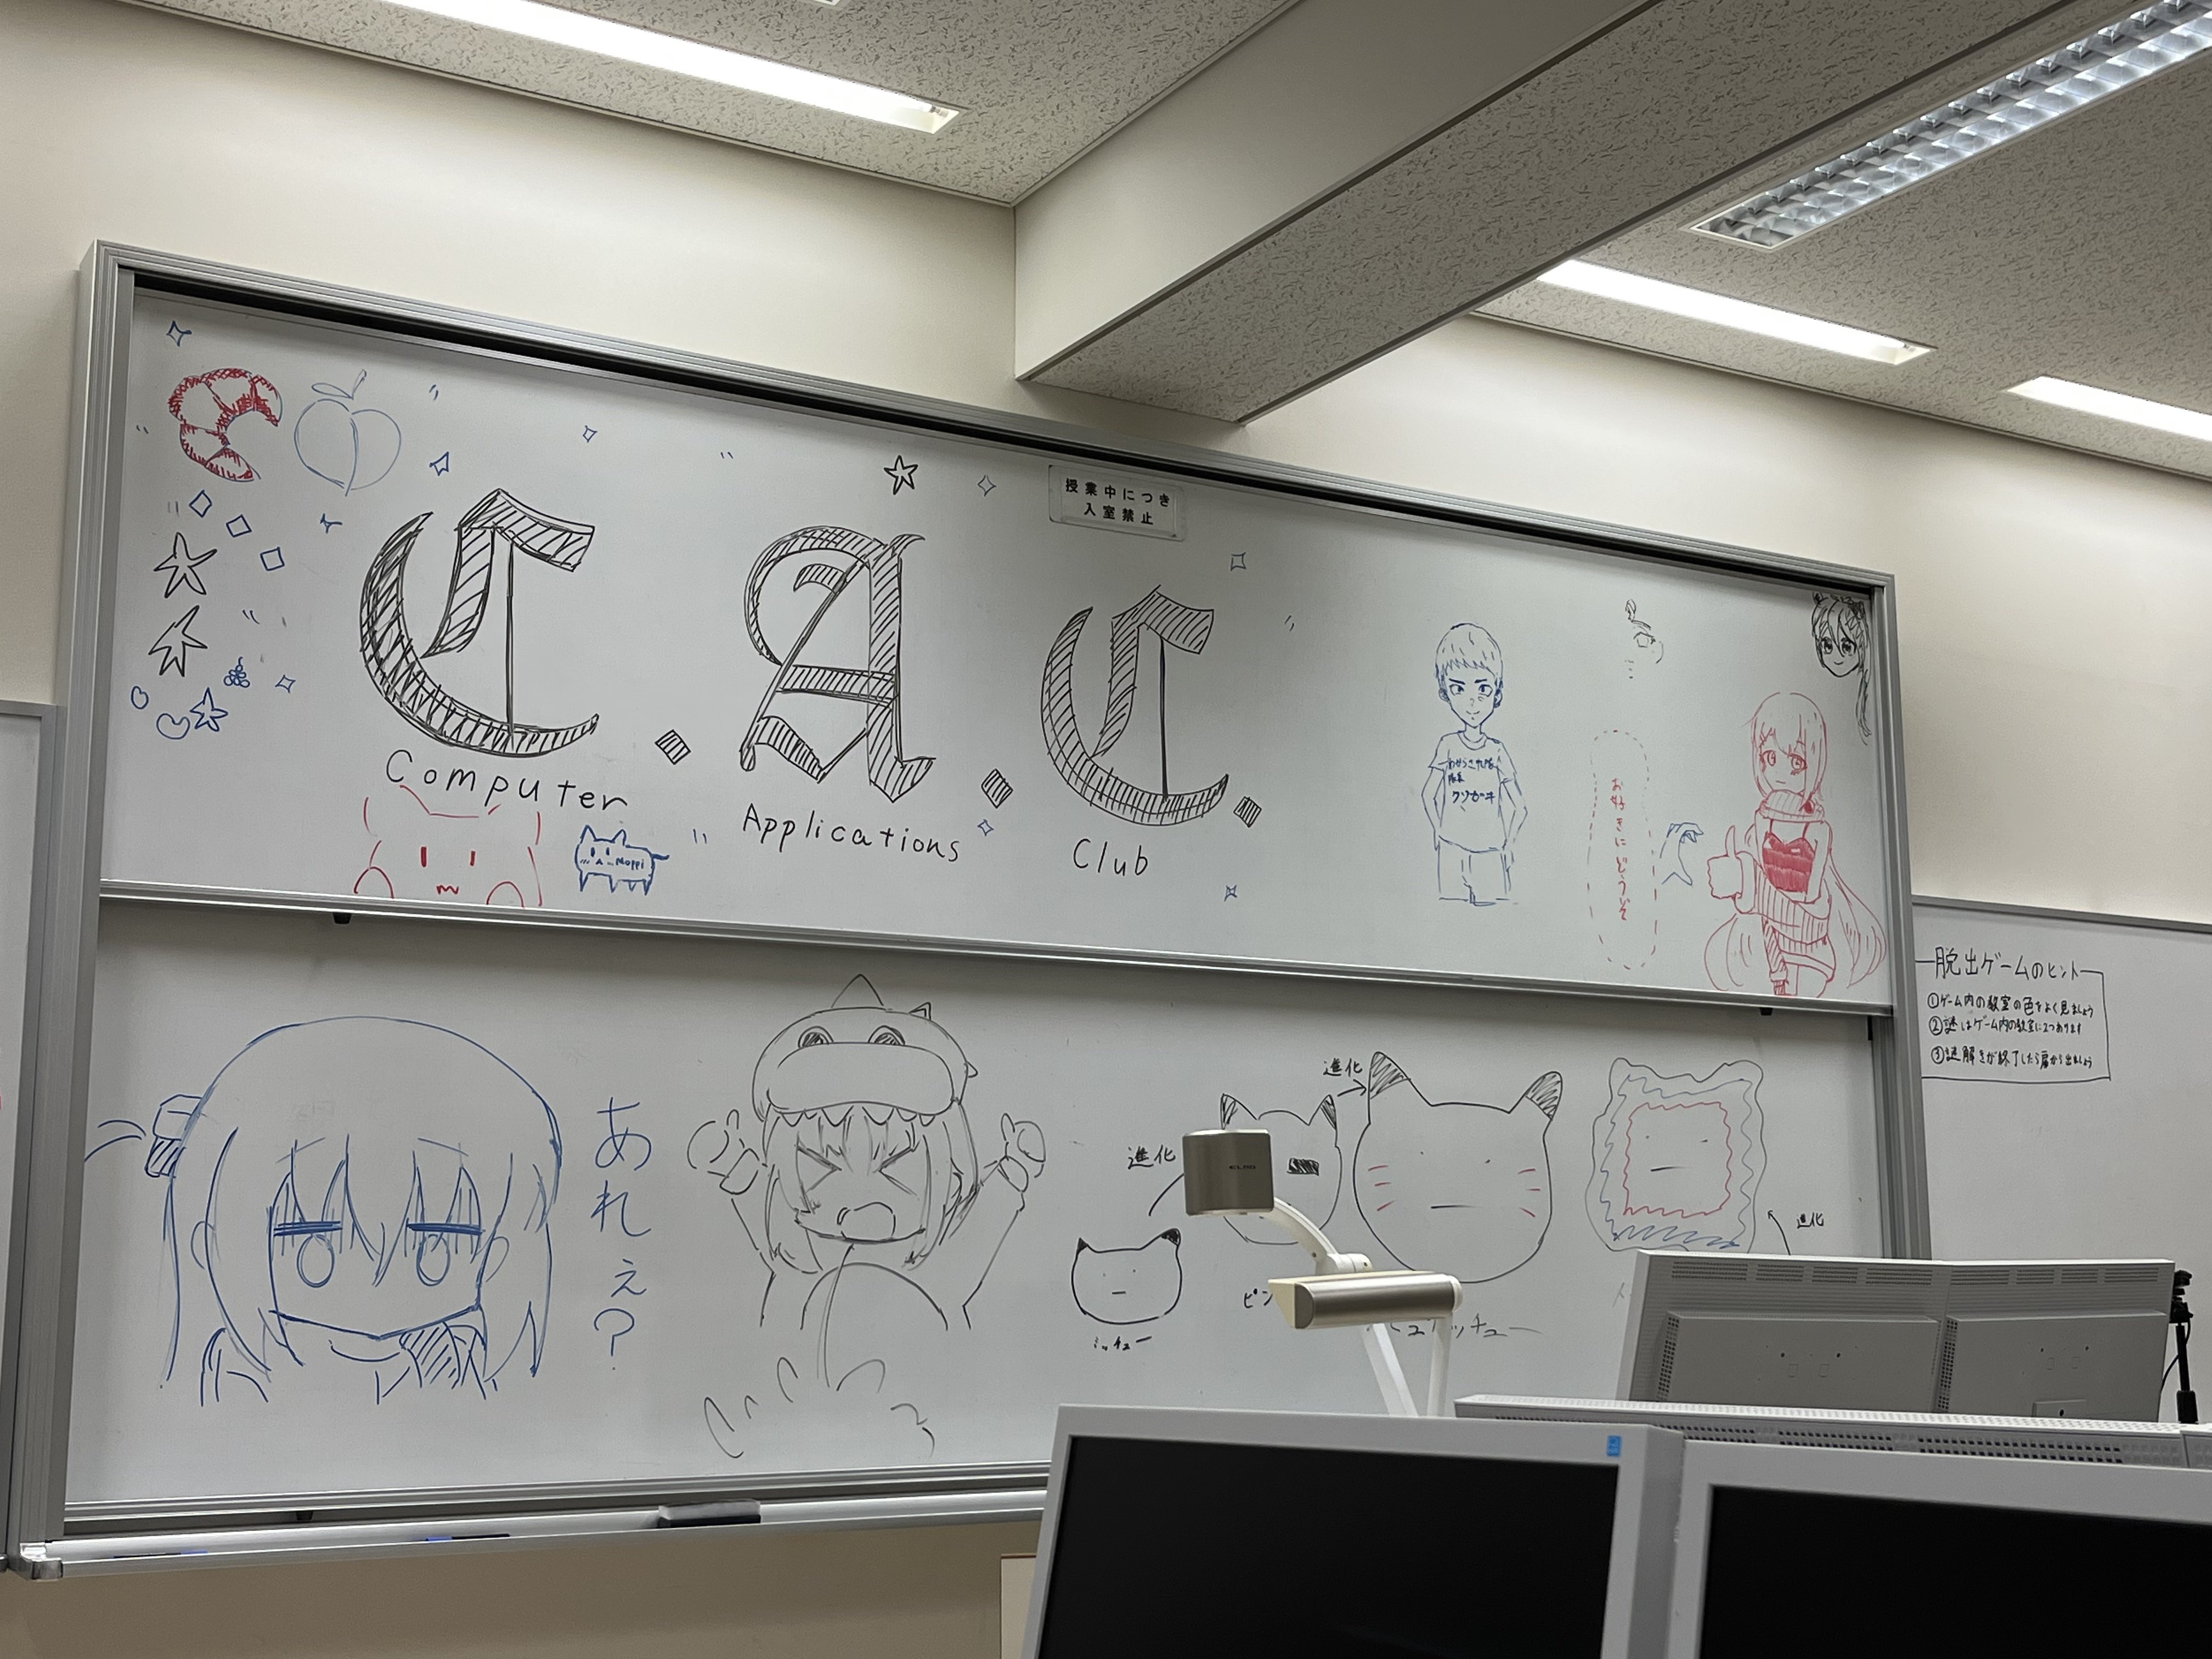 授業中につき
入室禁止
C.A.C.
Computer
Applications
Club
Moppi
隊長
クソガキ
お好きにどうぞ
脱出ゲームのヒント
①ゲーム内の教室の色をよく見ましょう
②謎はゲーム内の教室に2つあります
③謎解きが終了したら扉から出ましょう
あれぇ?
進化
進化
進化
ミッチュー
ELMO